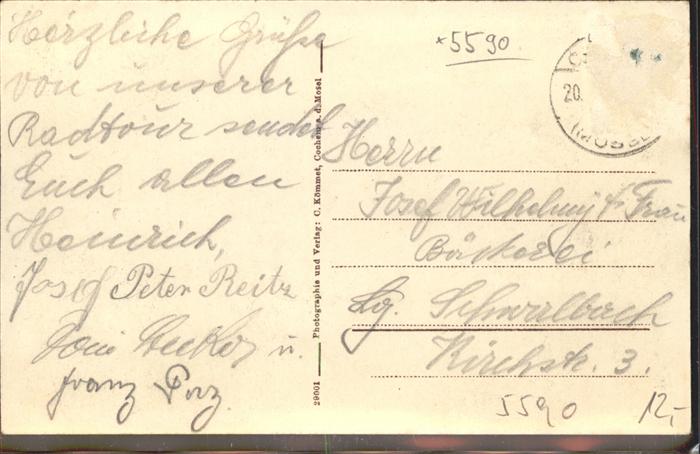 Herzliche Grüße
von unserer
Radtour sendet
Euch allen
Heinrich,
Josef Peter Reitz
Toni u.
Franz Porz.
29001 Photographie und Verlag: C. Kömmet, Cochem a. d. Mosel
*5590
20.
(MOSEL
Herrn
Josef Wilhelmy & Frau
Bäckerei
Lg. Schwalbach
Kirchstr. 3.
5590 12,-